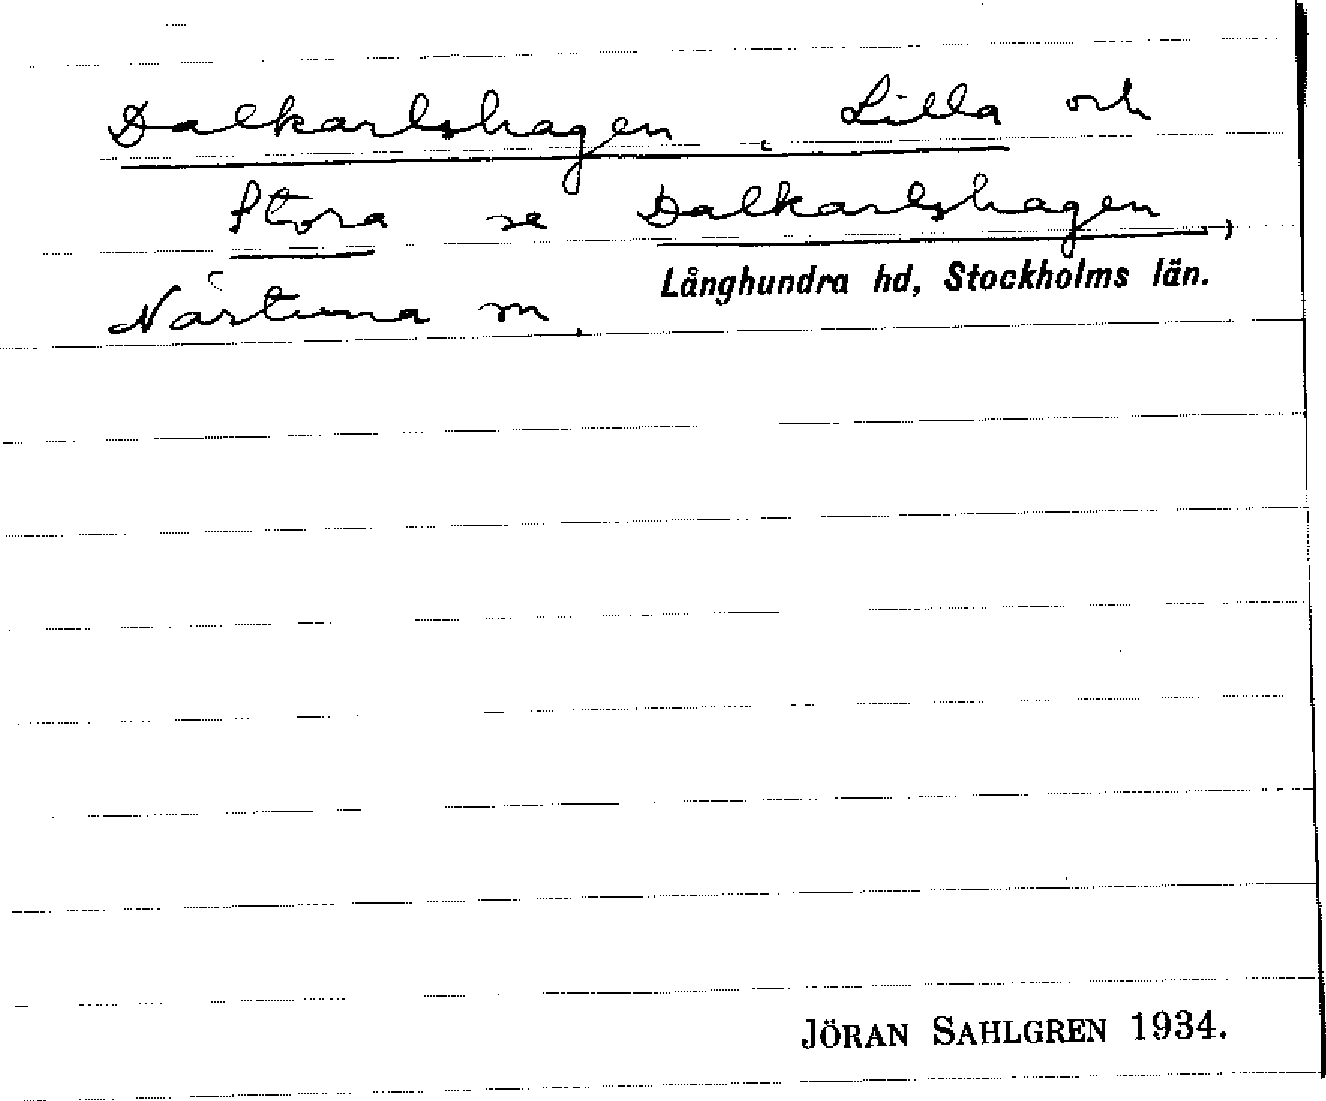 Dalkarlshagen, Lilla och
Stora se Dalkarlshagen,
Långhundra hd, Stockholms län.
Närtuna sn.
JÖRAN SAHLGREN 1934.